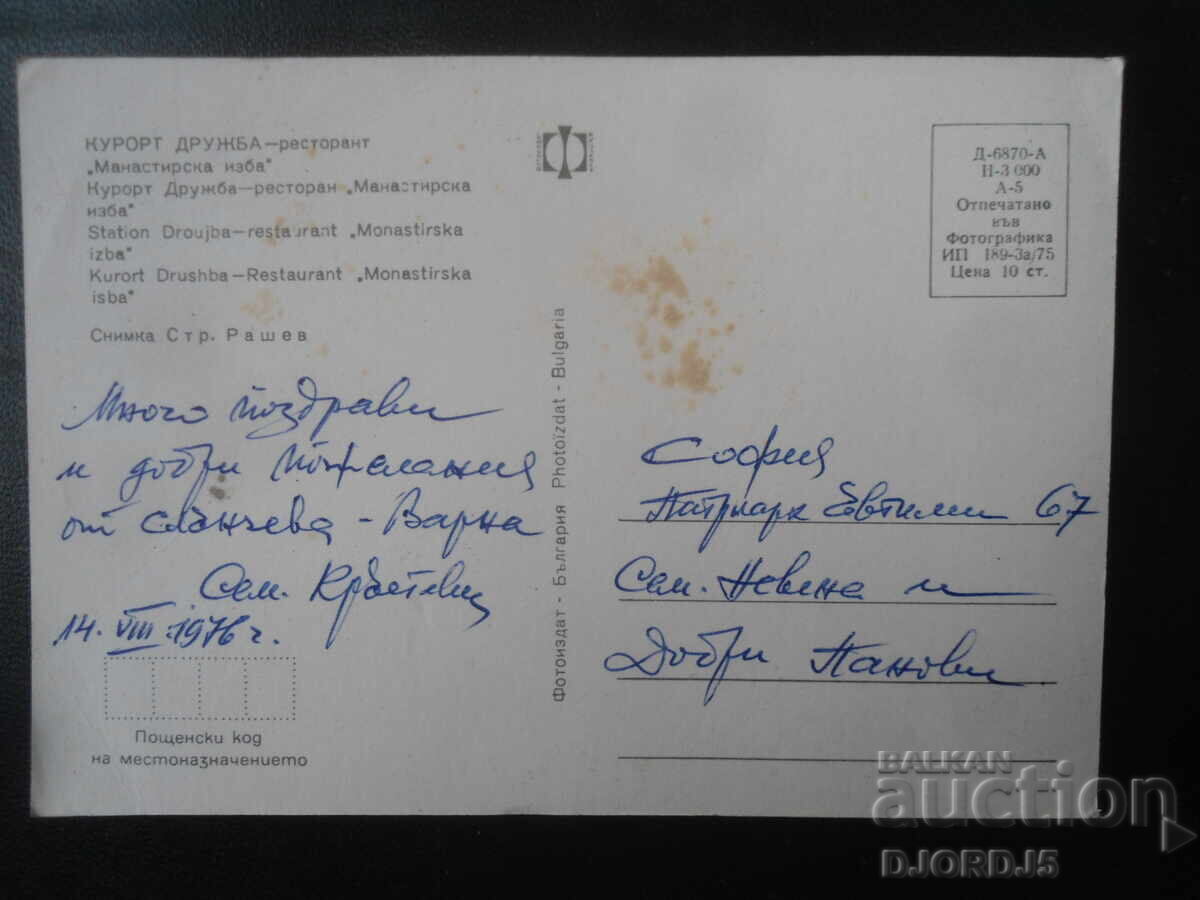 КУРОРТ ДРУЖБА—ресторант
„Манастирска изба"
Курорт Дружба—ресторан „Манастирска
изба"
Station Droujba—restaurant „Monastirska
izba"
Kurort Drushba—Restaurant „Monastirska
isba"
Снимка Стр. Рашев
Много поздрави
и добри пожелания
от слънчева - Варна
Сем. Кръстеви
14. VIII. 1976 г.
Пощенски код
на местоназначението
Фотоиздат - България Photoizdat - Bulgaria
Д-6870-А
Н-3 000
А-5
Отпечатано
във
Фотографика
ИП 189-3а/75
Цена 10 ст.
София
Патриарх Евтимий 67
Сем. Невена и
Добри Панови
BALKAN
auction
DJORDJ5